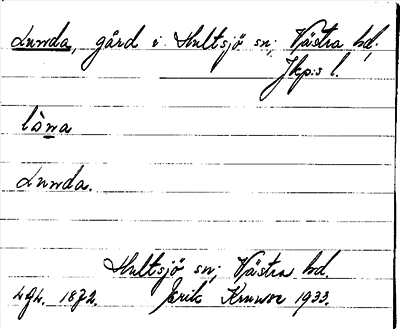 Lunda, gård i Hultsjö sn; Västra hd;
Jkp:s l.
Lunda.
Hultsjö sn; Västra hd.
1872. Erik Knuvor 1933.